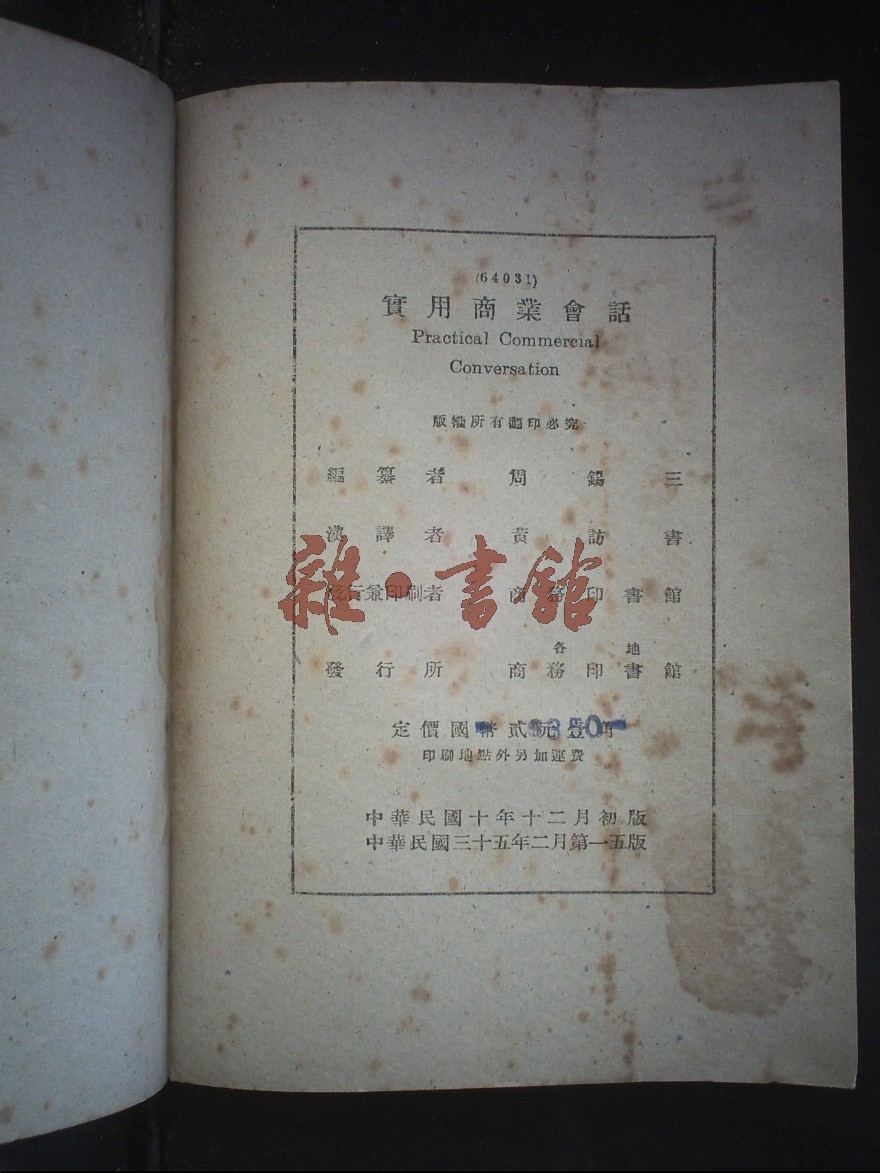 (64031)
實用商業會話
Practical Commercial
Conversation
版權所有翻印必究
編纂者 周錫三
漢譯者 黄訪書
發行兼印刷者 商務印書館
各地
發行所 商務印書館
定價國幣貳元壹角
印刷地點外另加運費
中華民國十年十二月初版
中華民國三十五年二月第一五版
雜·書館